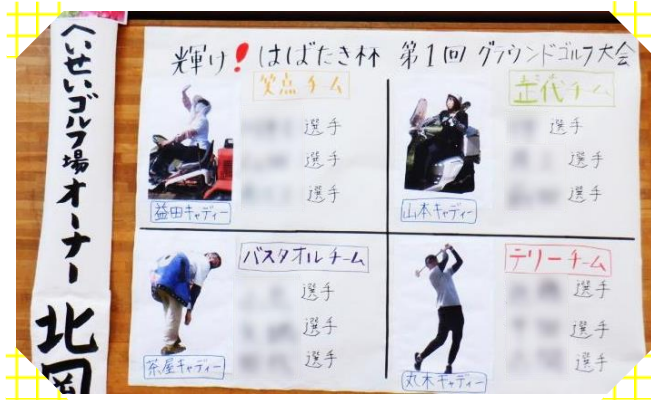 へいせいゴルフ場オーナー 北岡
輝け!はばたき杯 第1回 グラウンドゴルフ大会
笑点チーム
選手
選手
選手
益田キャディー
選手
選手
選手
山本キャディー
バスタオルチーム
選手
選手
選手
茶屋キャディー
テリーチーム
選手
選手
選手
丸木キャディー